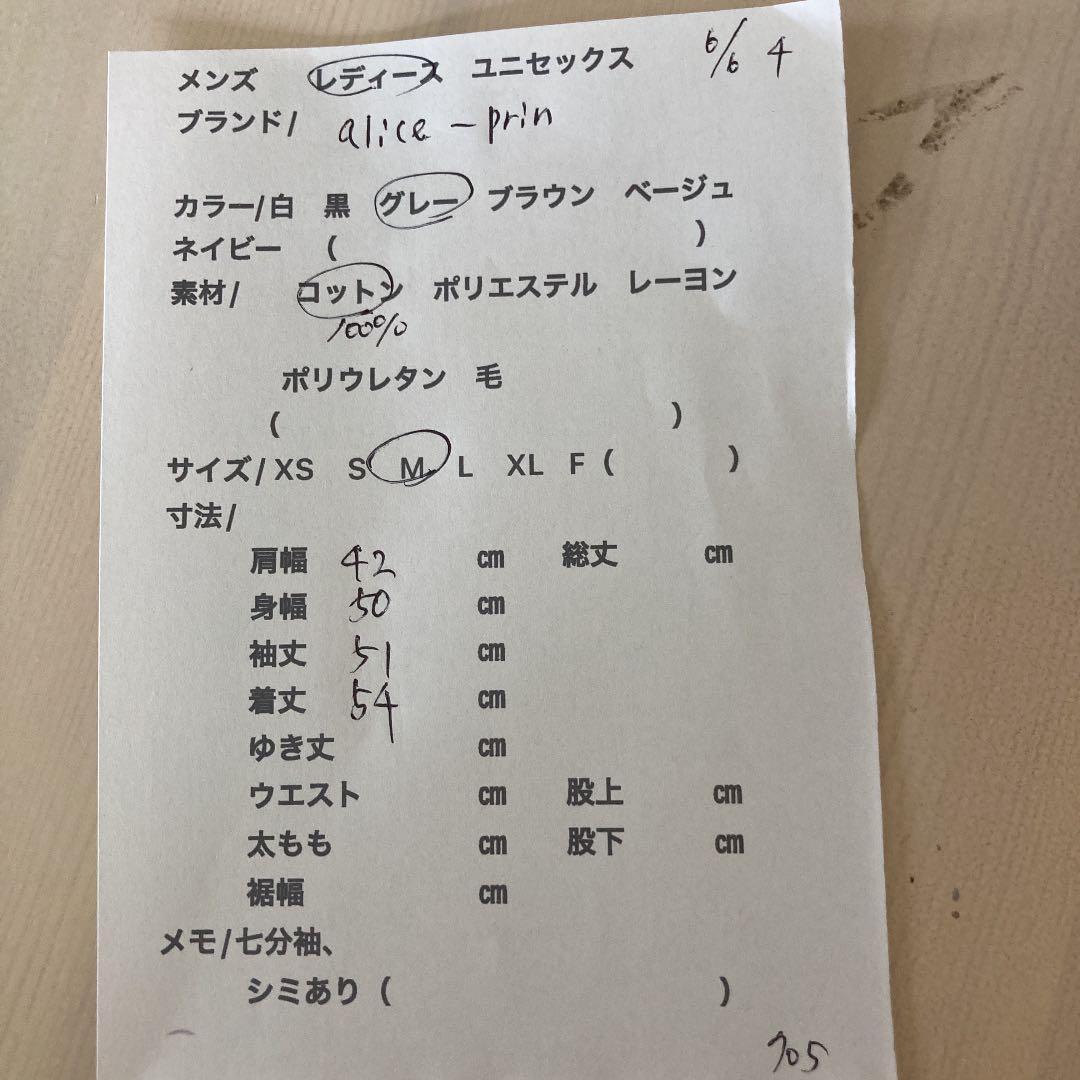 メンズ レディース ユニセックス 6/6 4
ブランド/ alice-prin
カラー/白 黒 グレー ブラウン ベージュ
ネイビー ( )
素材/ コットン ポリエステル レーヨン
100%
ポリウレタン 毛
( )
サイズ/XS S M L XL F ( )
寸法/
肩幅 42 cm 総丈 cm
身幅 50 cm
袖丈 51 cm
着丈 54 cm
ゆき丈 cm
ウエスト cm 股上 cm
太もも cm 股下 cm
裾幅 cm
メモ/七分袖、
シミあり ( )
705